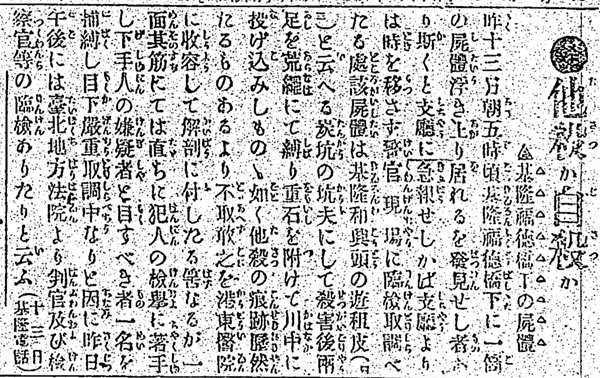 ●他殺か自殺か
△基隆福德橋下の屍體
昨十三日朝五時頃基隆福德橋下に一個
の屍體浮き上り居れるを發見せし者あ
り斯くと支廳に急報せしかば支廳より
は時を移さず警官現場に臨檢取調べ
たる處該屍體は基隆和興頭の游租皮(
)と云へる炭坑の坑夫にして殺害後兩
足を荒繩にて縛り重石を附けて川中に
投げ込みしもの、如く他殺の痕跡歷然
たるものあるより不取敢之を港東醫院
に收容して解剖に付したる筈なるが一
面其筋にては直ちに犯人の檢擧に着手
し下手人の嫌疑者と目すべき者一名を
捕縛し目下嚴重取調中なりと因に昨日
午後には臺北地方法院より判官及び檢
察官等の臨檢ありたりと云ふ(十三日基隆電話)